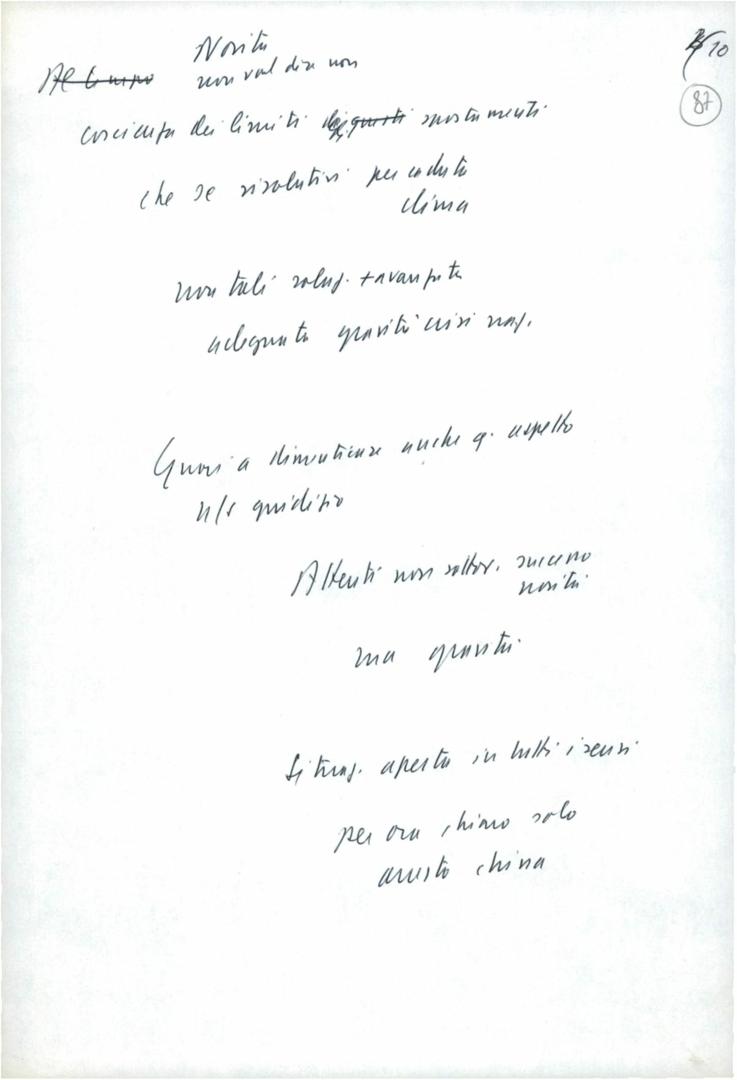 10
87
Novità
non vuol dire non
coscienza dei limiti spostamenti
che se risolutivi per caduta
clima
non tali soluz. + avanzata
adeguata gravità crisi naz.
Guai a dimenticare anche q. aspetto
n/s giudizio
Attenti non sottov. successo
novità
ma gravità
Situaz. aperta in tutti i sensi
per ora chiaro solo
questo china